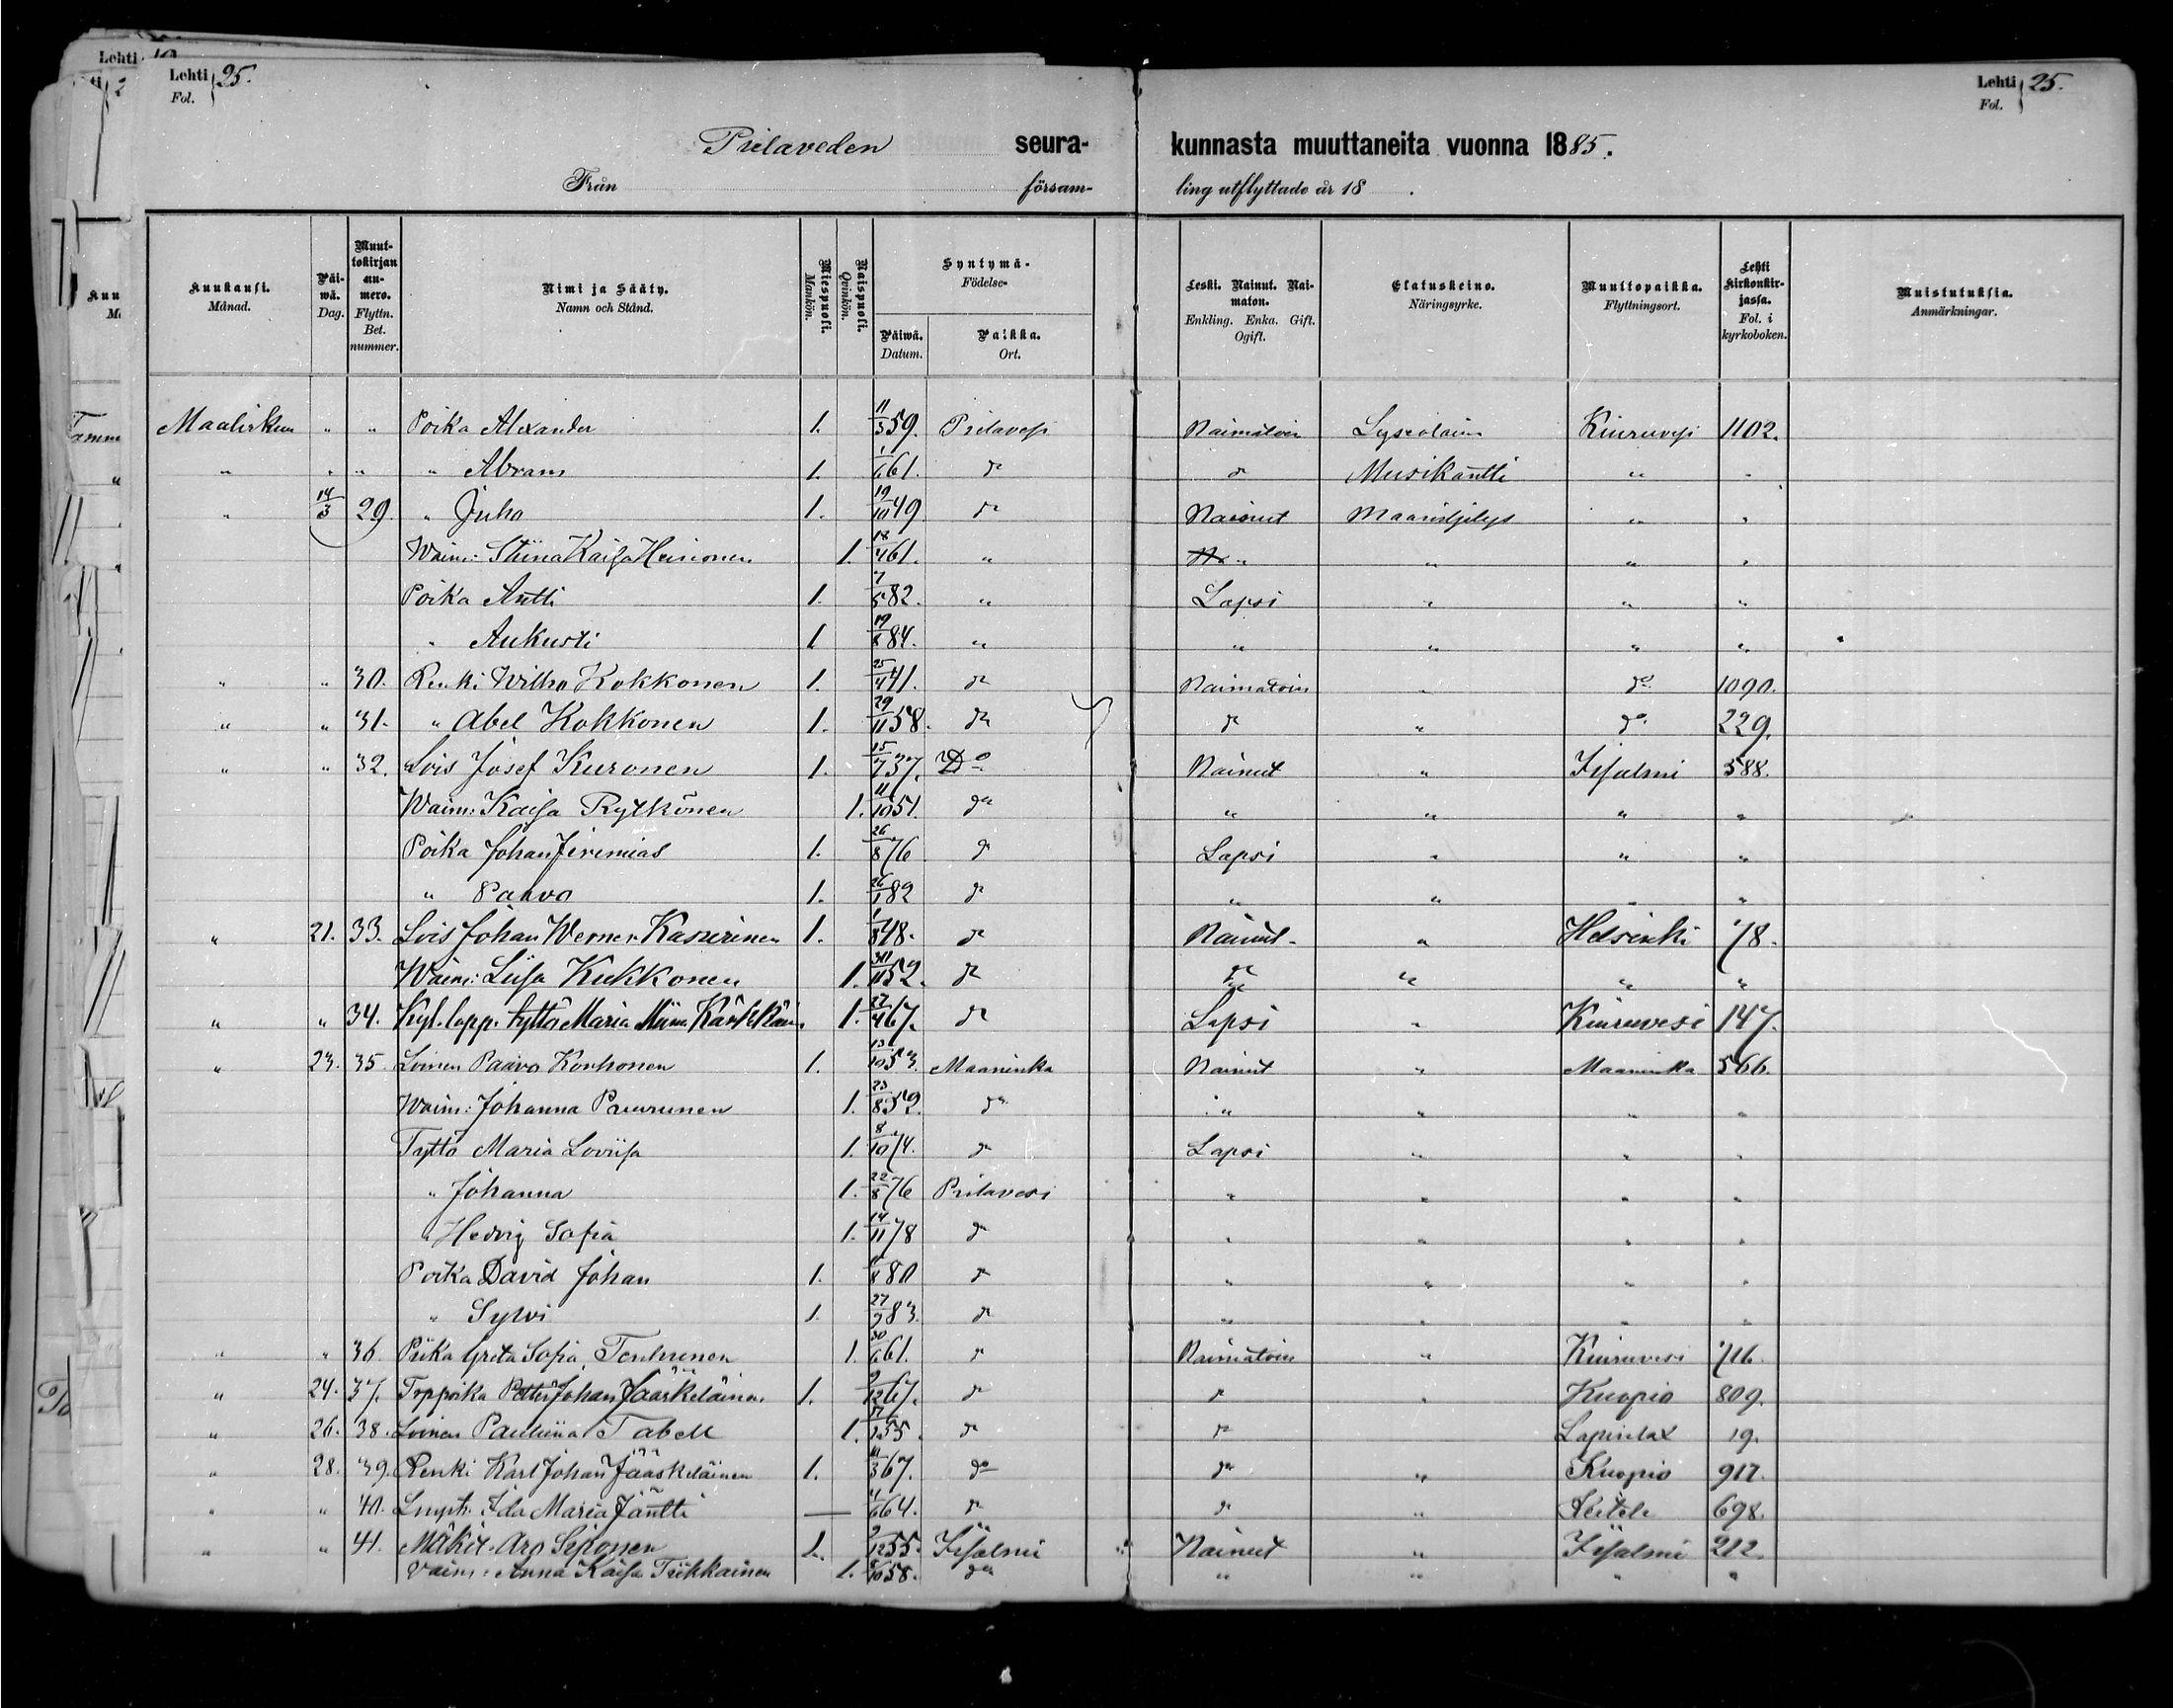 Lehti 25.
Fol.
Lehti 25.
Fol.
Pielaveden seura- kunnasta muuttaneita vuonna 1885.
Från försam- ling utflyttade år 18 .
Kuukausi. Månad.
Päi-wä. Dag.
Muut-tokirjan nu-mero. Flyttn. Bet. nummer.
Nimi ja Sääty. Namn och Stånd.
Miespuoli. Mankön.
Naispuoli. Qvinkön.
Syntymä- Födelse-
Päiwä. Datum.
Paikka. Ort.
Leski. Nainut. Nai-maton. Enkling. Enka. Gift. Ogift.
Elatuskeino. Näringsyrke.
Muuttopaikka. Flyttningsort.
Lehti Kirkonkir-jassa. Fol. i kyrkoboken.
Muistutuksia. Anmärkningar.
Maaliskuu " " Poika Alexander 1. 11/3 59. Pielavesi Naimatoin Kiuruvesi 1102.
" " " " Abram 1. 1/6 61. do do Musikantti " "
" 14/3 29. " Juho 1. 19/10 49 do Nainut Maanviljelys " "
Waim: Stiina Kaisa Heinonen 1. 18/4 61. " " " " "
Poika Antti 1. 7/5 82. " Lapsi " " "
" Aukusti 1 19/8 84. " " " " "
" " 30. Renki Wilho Kokkonen 1. 25/4 41. do Naimatoin " do 1090.
" " 31. " Abel Kokkonen 1. 29/11 58. do do " do 229.
" " 32. Lois Josef Kuronen 1. 15/7 37. Do Nainut " Iisalmi 588.
Waim: Kaisa Rytkönen 1. 11/10 51. do " " " "
Poika Johan Jeremias 1. 26/8 76 do Lapsi " " "
" Paavo 1. 26/1 82 do " " " "
" 21. 33. Lois Johan Werner Kasurinen 1. 1/8 48. do Nainut " Helsinki 78.
Waim: Liisa Kukkonen 1. 30/11 52. do do " " "
" " 34. tyttö Maria Miina 1. 27/4 67. do Lapsi " Kiuruvesi 147.
" 23. 35. Loinen Paavo Korhonen 1. 13/10 53. Maaninka Nainut " Maaninka 566.
Waim: Johanna Puurunen 1. 23/8 52. do " " " "
Tyttö Maria Loviisa 1. 8/10 74. do Lapsi " " "
" Johanna 1. 22/8 76 Pielavesi " " " "
" Hedvig Sofia 1. 14/11 78 do " " " "
Poika David Johan 1. 80 do " " " "
" Sylvi 1. 27/9 83. do " " " "
" " 36. Piika Greta Sofia Tenhunen 1. 30/6 61. do Naimatoin " Kiuruvesi 716.
" 24. 37. Johan Jääskeläinen 1. 9/12 67. do do " Kuopio 809.
" 26. 38. Loinen Pauliina Tabell 1. 55. do do 19.
" 28. 39. Renki Karl Johan Jääskeläinen 1. 11/3 67. do do " Kuopio 917.
" " 40. Ida Maria Jäntti — 4/6 64. do do " Keitele 698.
" " 41. Mäkit. Aro Seponen 1. 9/12 55. Iisalmi " Nainut " Iisalmi 212.
Vaim: Anna Kaisa Tiikkainen 1. 8/10 58. do " " " "